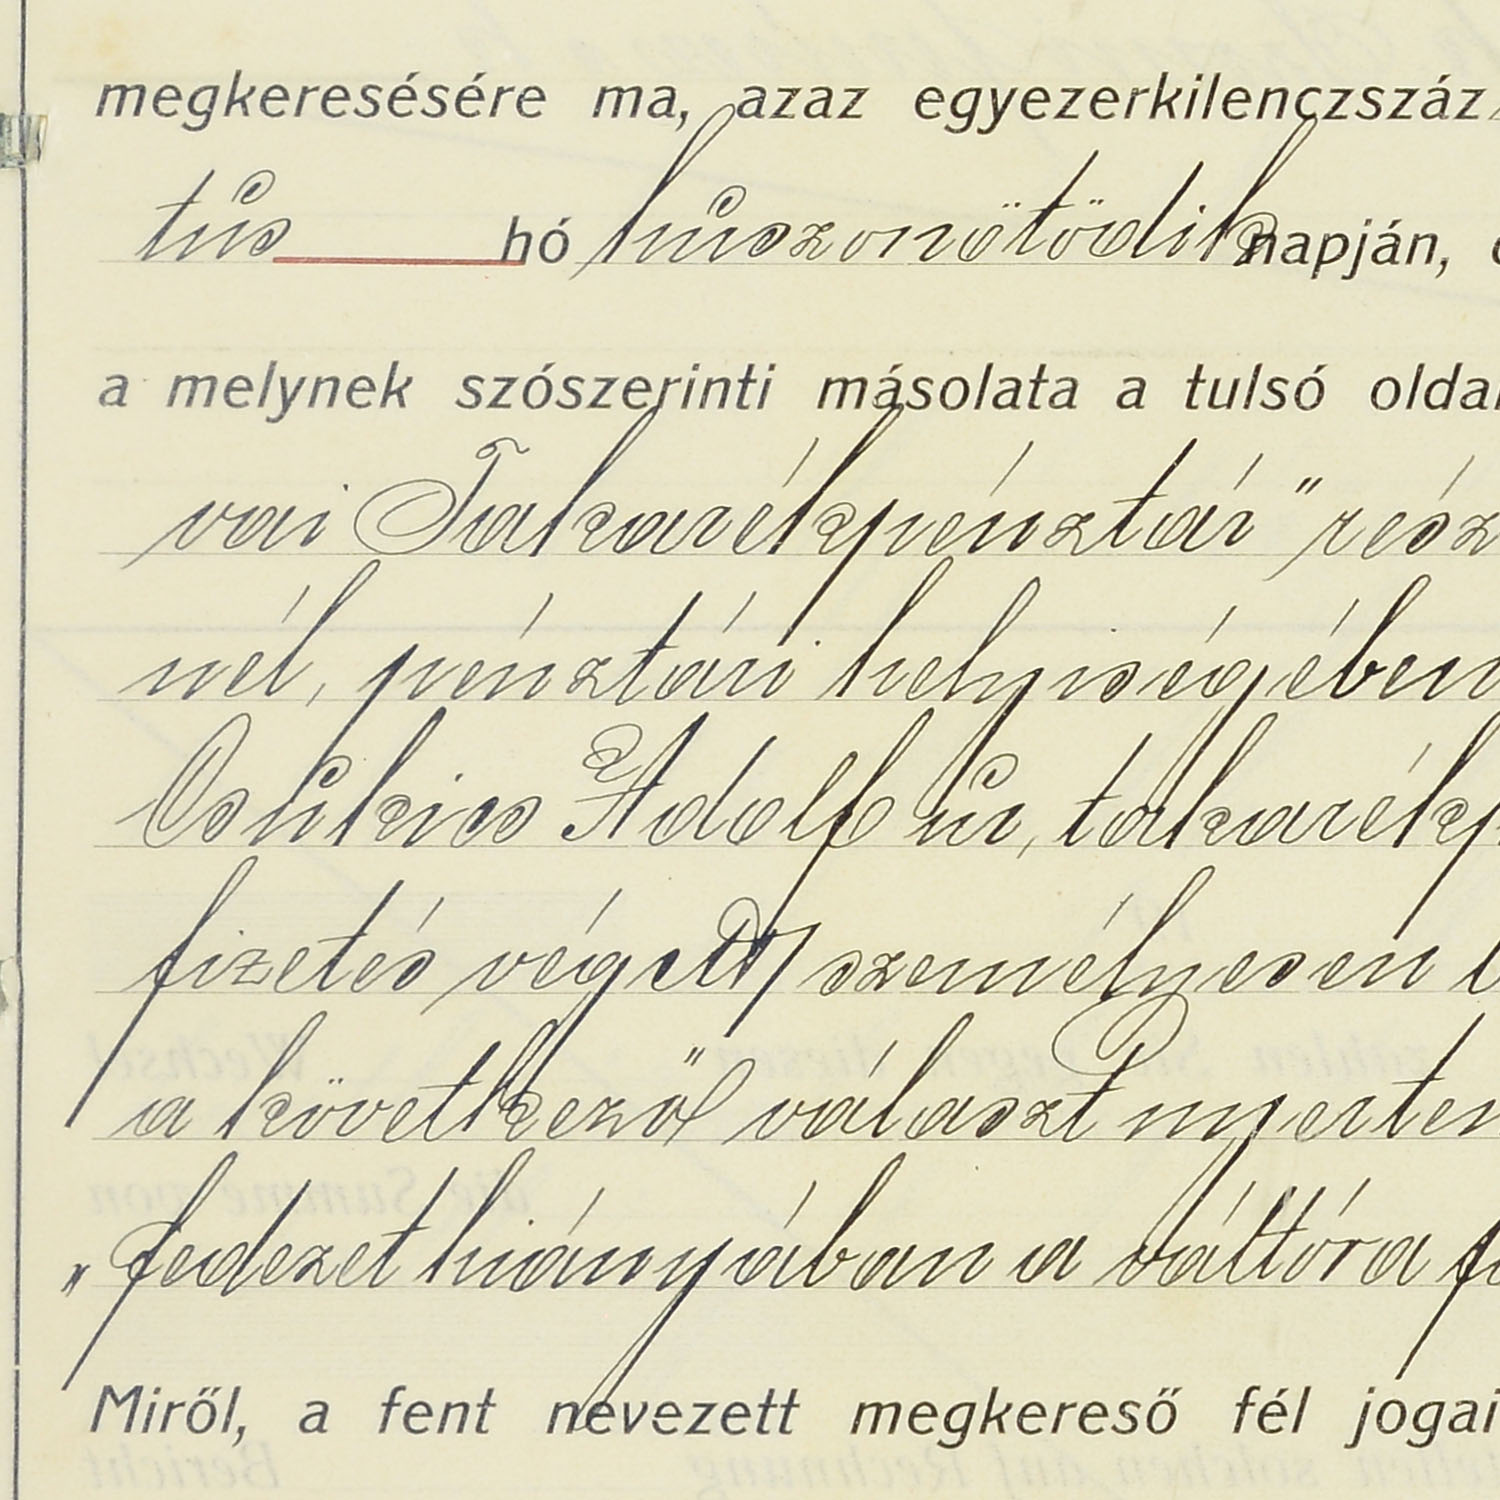 megkeresésére ma, azaz egyezerkilenczszáz
tus hó huszonötödik napján,
a melynek szószerinti másolata a tulsó oldal
vai Takarékpénztár" rész
nél, pénztári helyiségében
Csukics Adolf úr, takarékp
fizetés végett személyesen
a következő választ nyertem
„fedezet hiányában a váltóra fi
Miről, a fent nevezett megkereső fél jogai